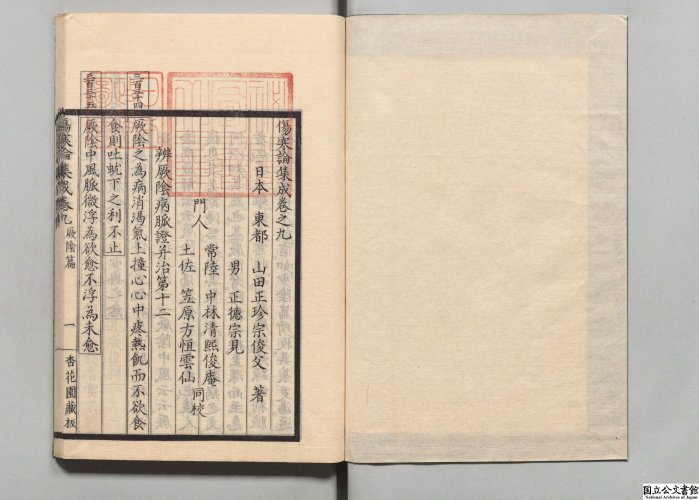 傷寒論集成卷之九
日本 東都 山田正珍宗俊父 著
男 正德宗見
門人
常陸 中林清熙俊庵
土佐 笠原方恒雲仙
同校
辨厥陰病脈證并治第十二
三百三十四
厥陰之為病消渴氣上撞心心中疼熱飢而不欲食
食則吐蚘下之利不止
厥陰中風脈微浮為欲愈不浮為未愈
傷寒論集成卷九 厥陰篇 一 杏花園藏板
国立公文書館
National Archives of Japan